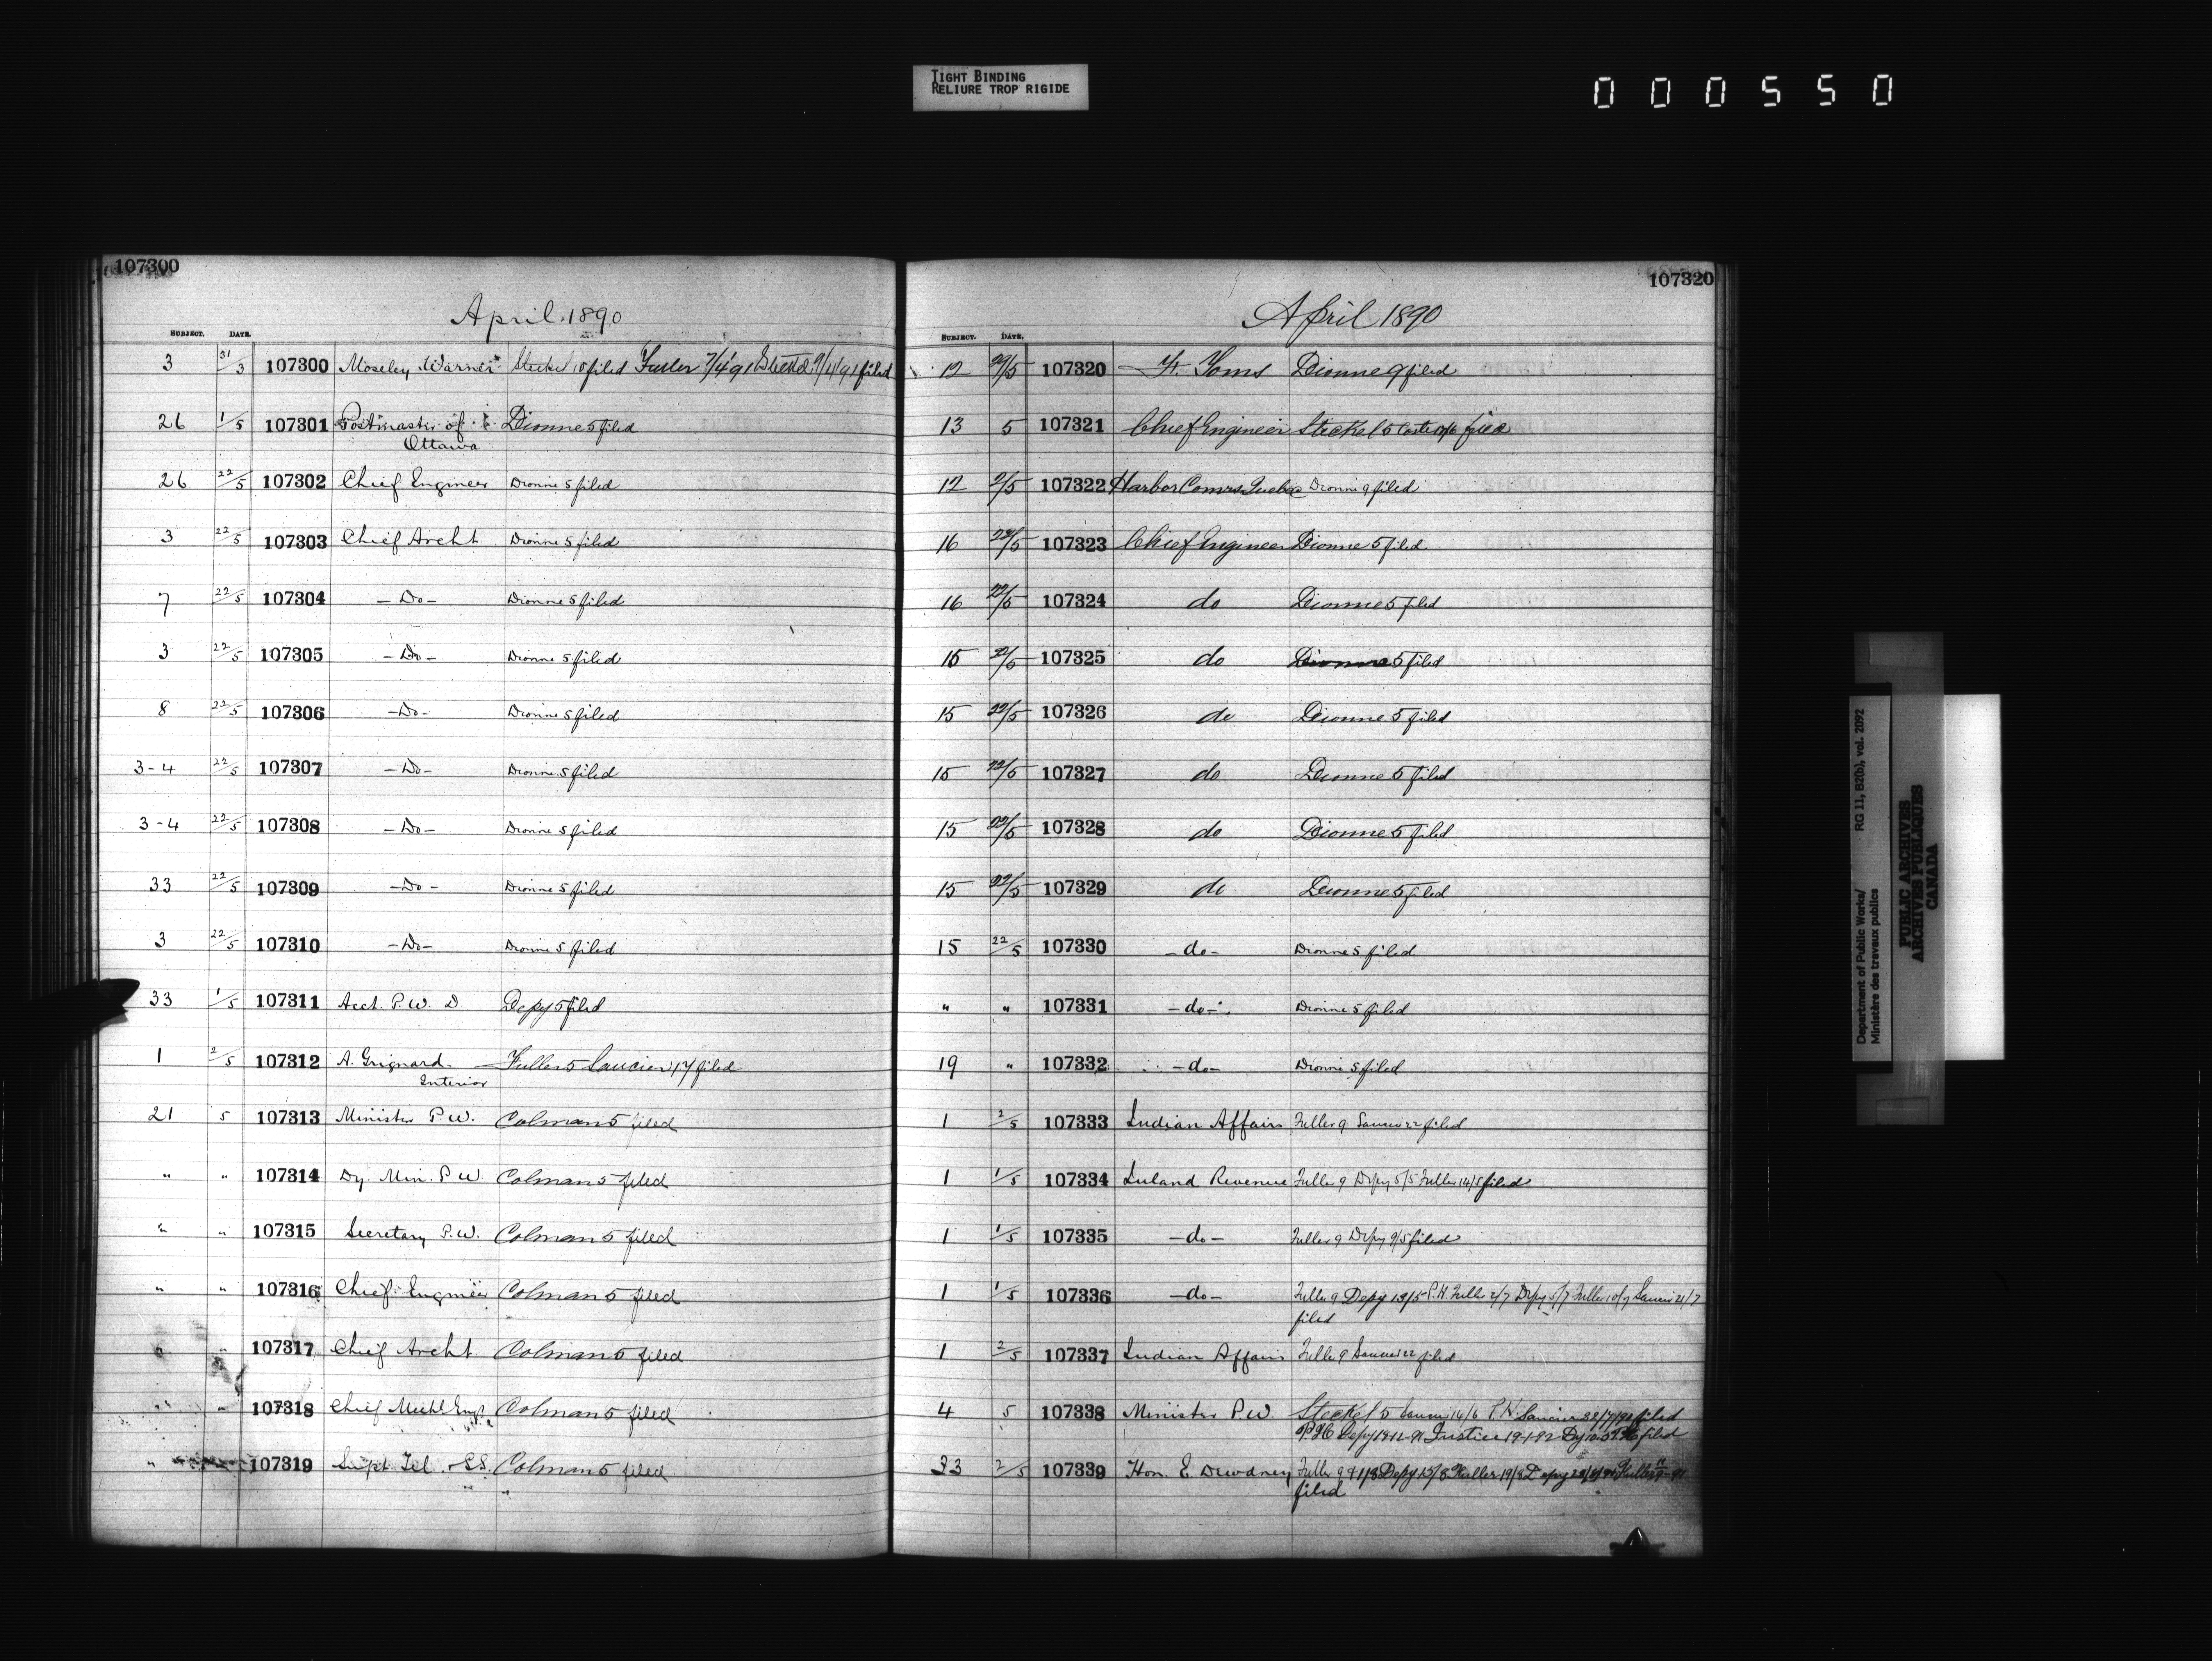 TIGHT BINDING
RELIURE TROP RIGIDE
000550
107300
April 1890
SUBJECT. DATE.
3 31/3 107300 Moseley Warner Steckel 10 filed Fuller 7/4/91 Steckel 9/4/91 filed
26 1/5 107301 Postmaster of Dionne 5 filed
Ottawa
26 22/5 107302 Chief Engineer Dionne 5 filed
3 22/5 107303 Chief Archt. Dionne 5 filed
7 22/5 107304 - Do - Dionne 5 filed
3 22/5 107305 - Do - Dionne 5 filed
8 22/5 107306 - Do - Dionne 5 filed
3-4 22/5 107307 - Do - Dionne 5 filed
3-4 22/5 107308 - Do - Dionne 5 filed
33 22/5 107309 - Do - Dionne 5 filed
3 22/5 107310 - Do - Dionne 5 filed
33 1/5 107311 Acct. P.W.D Depy 5 filed
1 2/5 107312 A. Grignard Fuller 5 Saucier 17 filed
Interior
21 5 107313 Minister P.W. Colman 5 filed
" " 107314 Dy. Min. P.W. Colman 5 filed
" " 107315 Secretary P.W. Colman 5 filed
" " 107316 Chief Engineer Colman 5 filed
" " 107317 Chief Archt. Colman 5 filed
" " 107318 Chief Mechl Engr. Colman 5 filed
" 107319 Supt Tel. & SS. Colman 5 filed
107320
April 1890
SUBJECT. DATE.
12 29/5 107320 Toms Dionne 9 filed
13 5 107321 Chief Engineer Steckel 5 filed
12 2/5 107322 Harbor Comrs. Quebec Dionne 9 filed
16 22/5 107323 Chief Engineer Dionne 5 filed
16 22/5 107324 do Dionne 5 filed
15 22/5 107325 do Dionne 5 filed
15 22/5 107326 do Dionne 5 filed
15 22/5 107327 do Dionne 5 filed
15 22/5 107328 do Dionne 5 filed
15 22/5 107329 do Dionne 5 filed
15 22/5 107330 - do - Dionne 5 filed
" " 107331 - do - Dionne 5 filed
19 " 107332 - do - Dionne 5 filed
1 2/5 107333 Indian Affairs Fuller 9 Saucier 22 filed
1 1/5 107334 Inland Revenue Fuller 9 Depy 5/5 Fuller 14/5 filed
1 1/5 107335 - do - Fuller 9 Depy 9/5 filed
1 1/5 107336 - do - Fuller 9 Depy 13/5 P.H. Fuller 2/7 Depy 5/7 Fuller 10/7 Saucier 21/7
filed
1 2/5 107337 Indian Affairs Fuller 9 Saucier 22 filed
4 5 107338 Minister P.W. Steckel 5 Saucier 14/6 P.H. Saucier filed
Depy 19-12-91 Justice 19-1-92 filed
33 2/5 107339 Hon. E. Dewdney Fuller 9 Depy 15/8 Fuller 19/8 Depy Fuller
filed
Department of Public Works/ RG 11, B2(b), vol. 2092
Ministère des travaux publics
PUBLIC ARCHIVES
ARCHIVES PUBLIQUES
CANADA